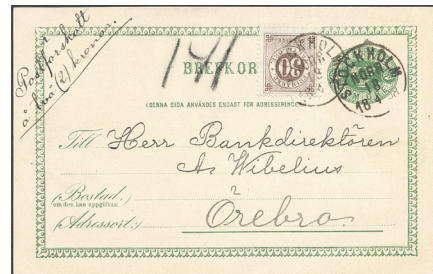 Postförskott
à två (2) kronor.
141
BREFKOR
(DENNA SIDA ANVÄNDES ENDAST FÖR ADRESSERINGEN)
STOCKHOLM
NORR
Till Herr Bankdirektören
A. Wibelius
(Bostad,)
om den kan uppgifvas
i
(Adressort:)
Örebro.